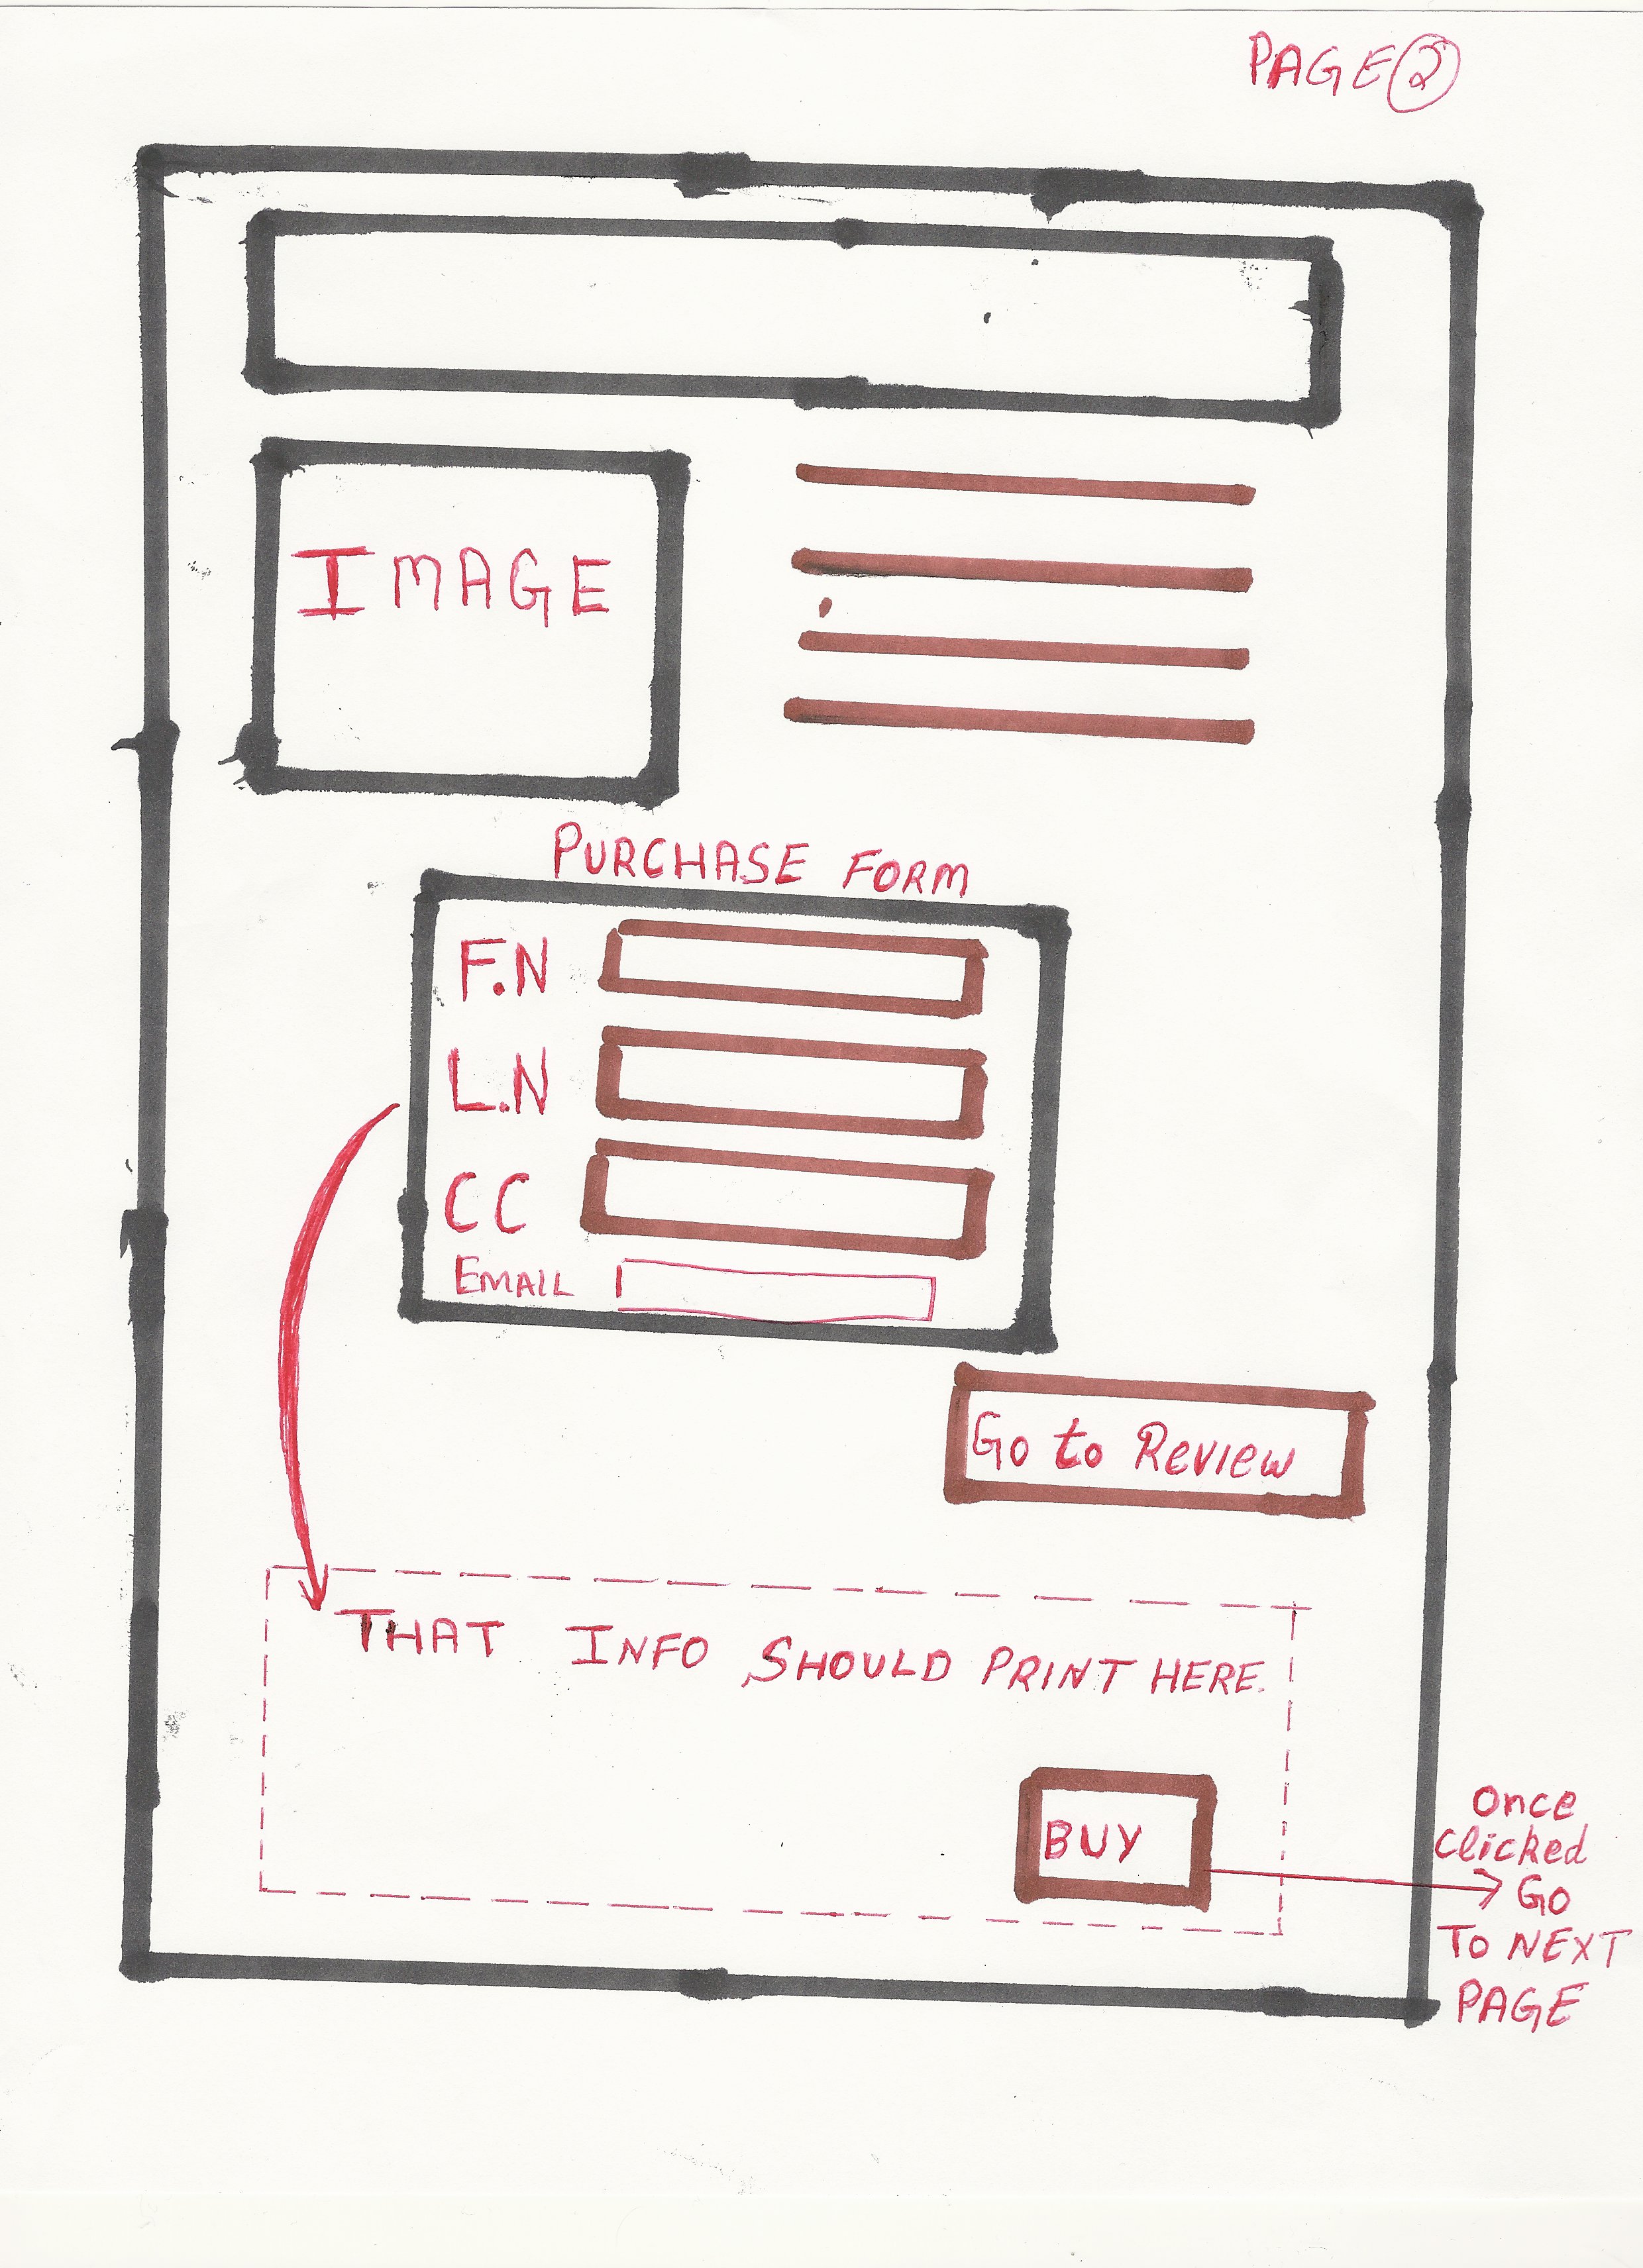 PAGE 2
IMAGE
PURCHASE FORM
F.N
L.N
CC
EMAIL
Go to Review
THAT INFO SHOULD PRINT HERE.
BUY
Once
Clicked
GO
TO NEXT
PAGE